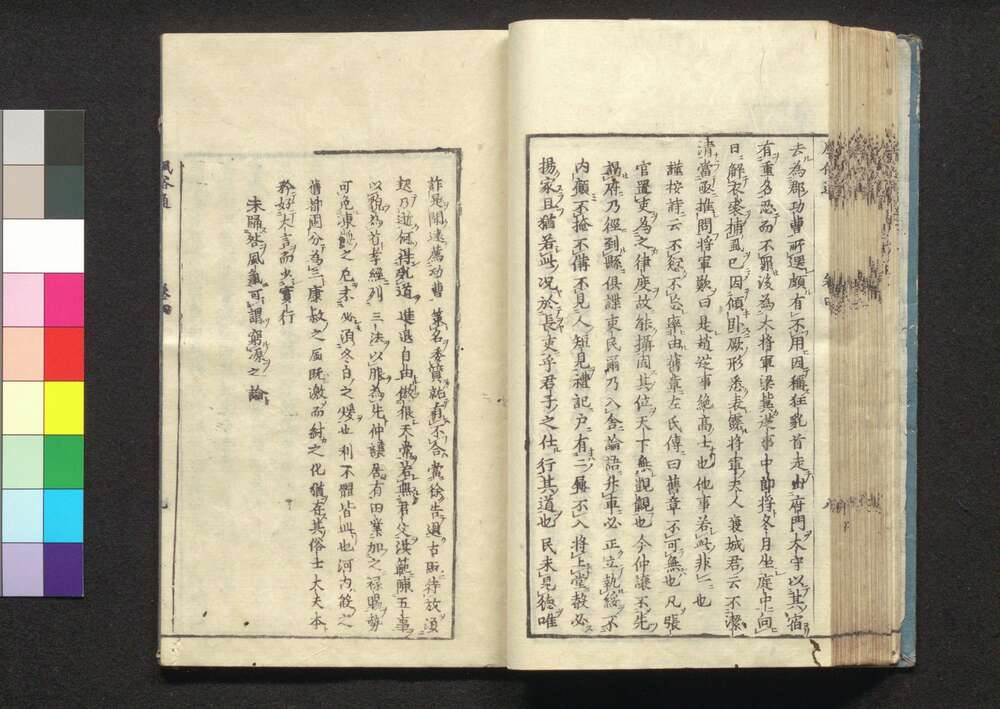 去為郡功曹所選頗有不用因稱狂亂首走出府門太守以其宿
有重名忍而不罪後為大將軍梁冀從事中郎將冬月坐庭中向
日解衣裘捕虱已因傾臥厥形悉表露將軍夫人襄城君云不潔
清當亟推問將軍歎曰是趙從事絶高士也他事若此非一也
謹按詩云不愆不忘率由舊章左氏傳曰舊章不可無也凡張
官置吏為之律度故能攝固其位天下無覬覦也今仲讓不先
謁府乃徑到縣俱諜吏民爾乃入舍論語升車必正立執綏不
内顧不掩不備不見人短見禮記戸有二屨不入將上堂聲必
揚家且猶若此況於長吏乎君子之仕行其道也民未見德唯
詐是聞遠薦功曹策名委質就有不合當徐告退古旣待放須
起乃逝何得亂道進退自由傲很天常若無君父洪範陳五事
以貌為首孝經列三法以服為先仲讓居有田業加之祿賜勢
可免凍餒之厄未必須冬日之煖也利不體皆此也河内殷之
舊都國分為三康叔之風既激而紂之化猶在其俗士大夫本
矜好大言而少實行
末歸於風氣可謂窮源之論
風俗通
卷四
九